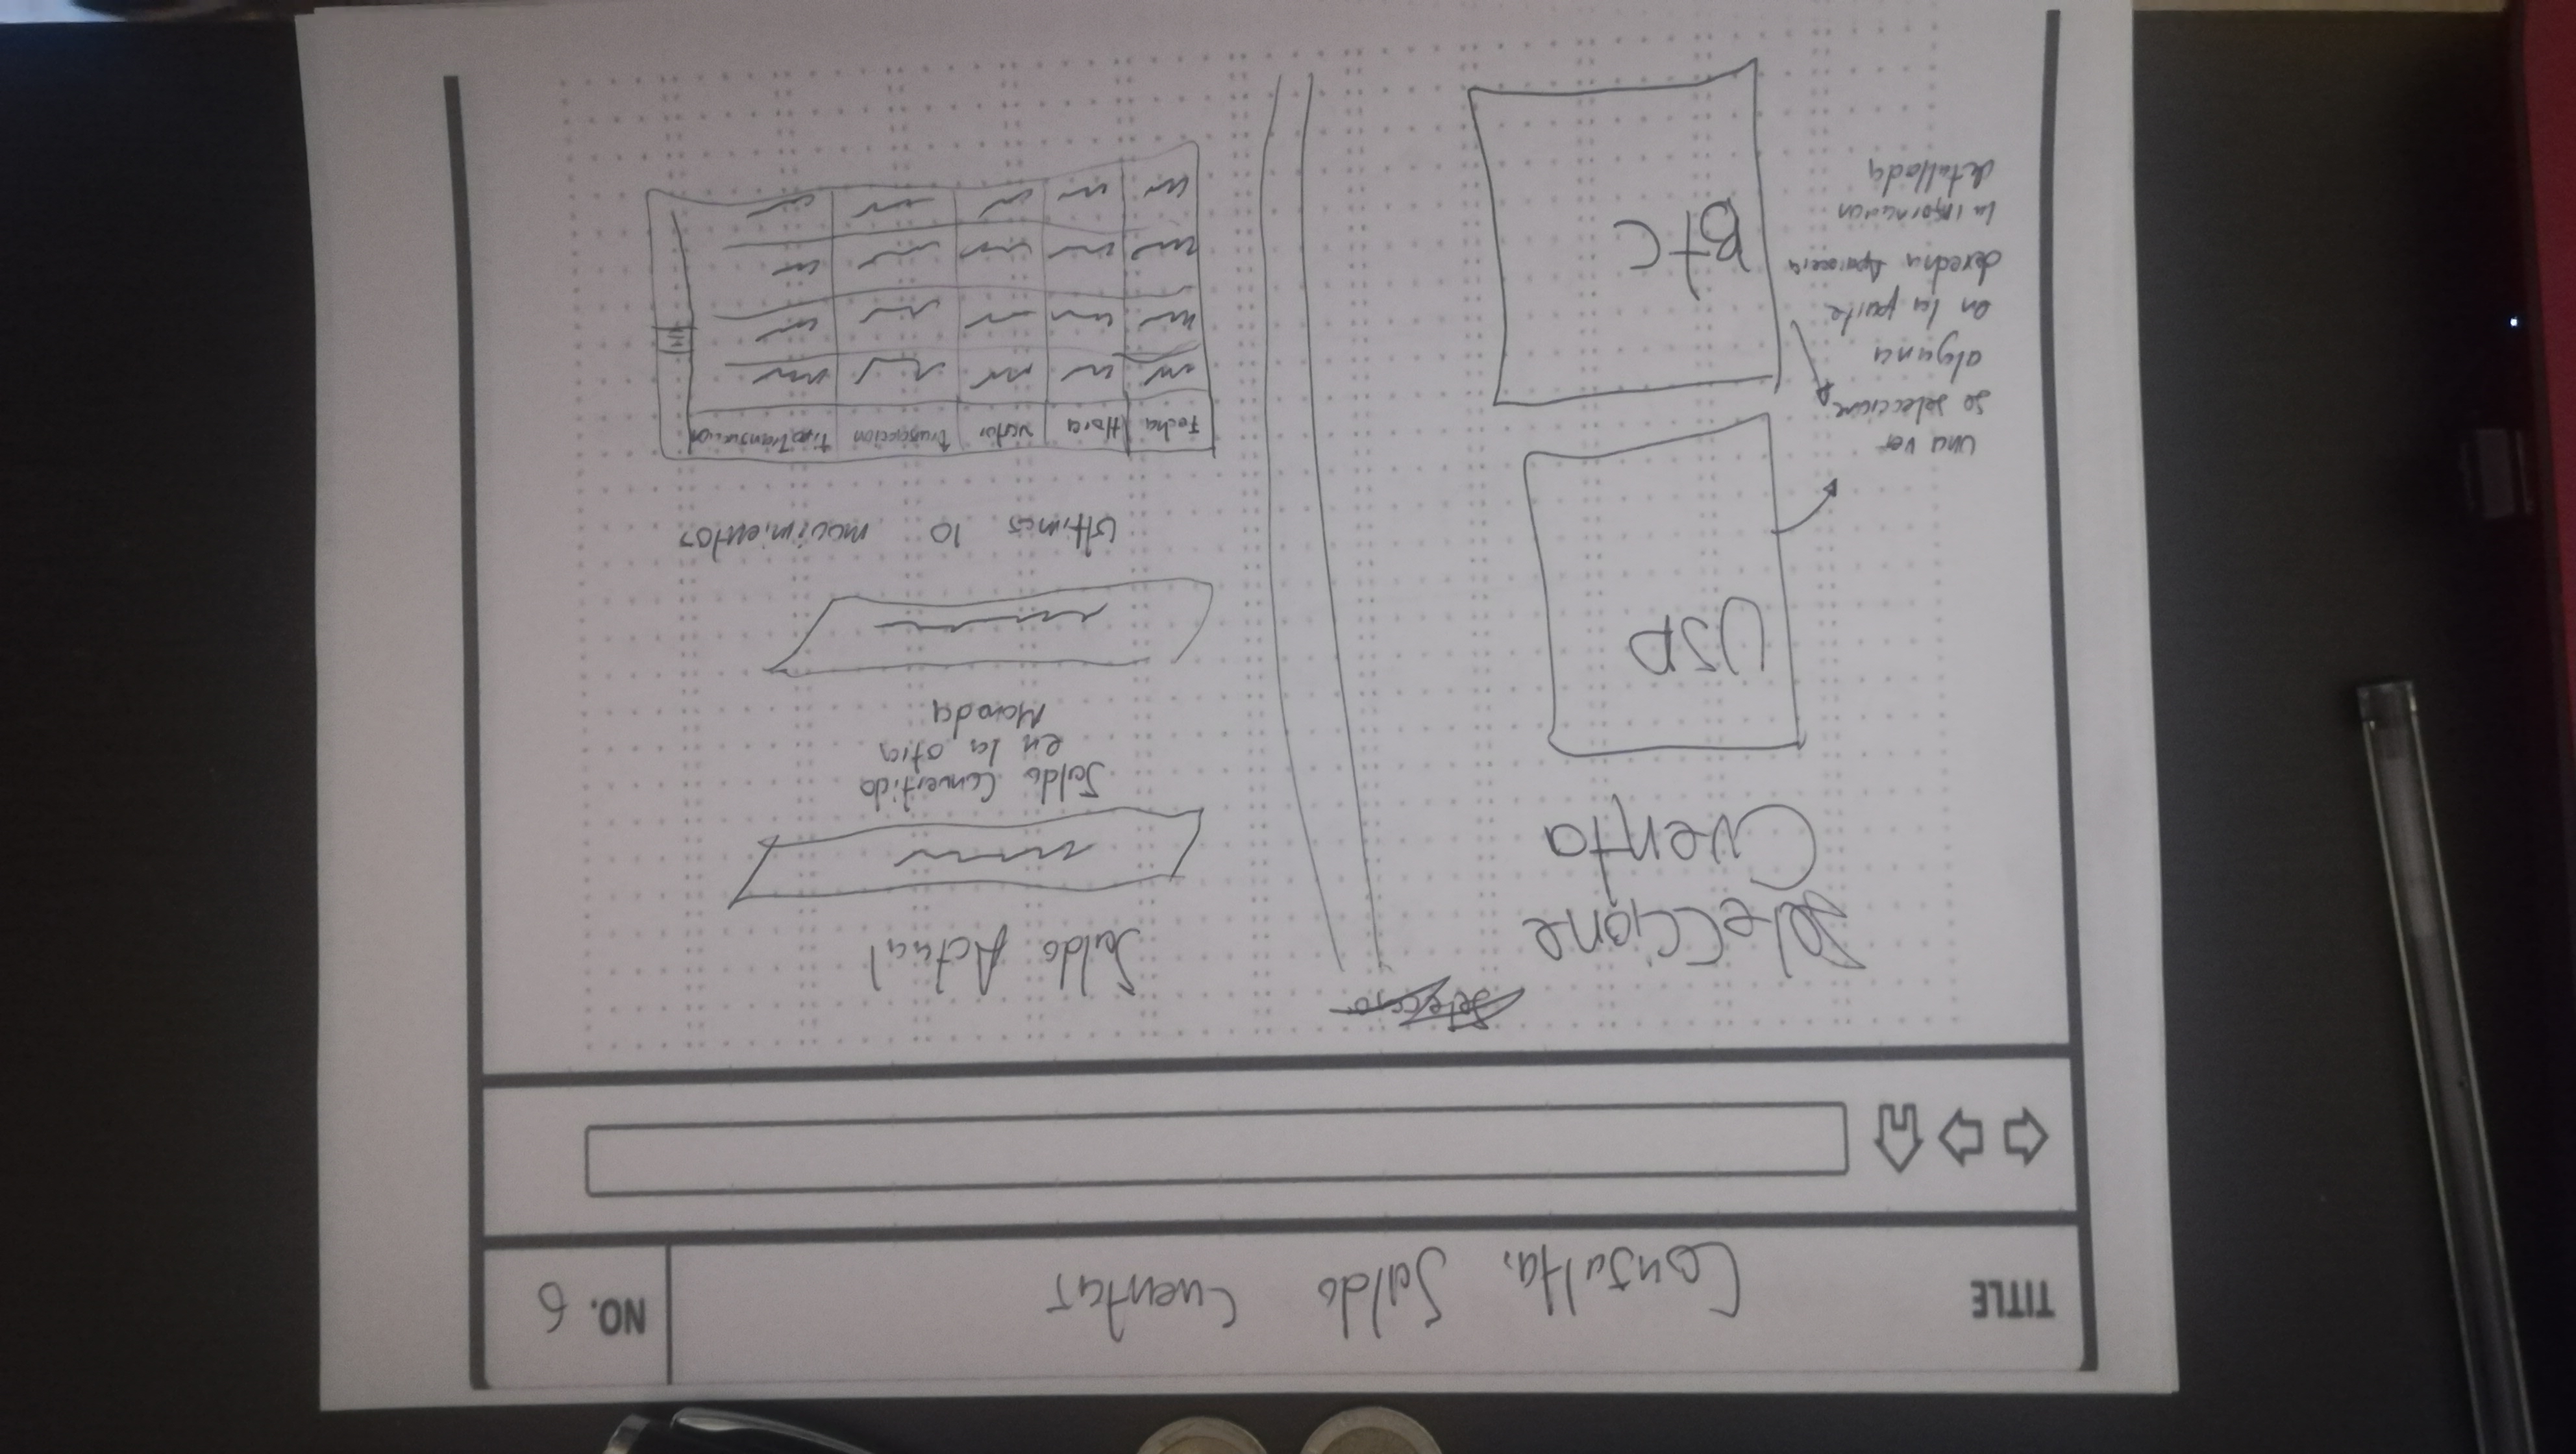 TITLE Consulta, Saldo Cuentas NO. 6
Seleccione
Cuenta
USD
BTC
una vez
se seleccione
alguna
en la parte
derecha Aparecera
la informacion
detallada
Saldo Actual
Saldo Convertido
en la otra
Moneda
Ultimos 10 movimientos
Fecha Hora valor transaccion tipo Transaccion